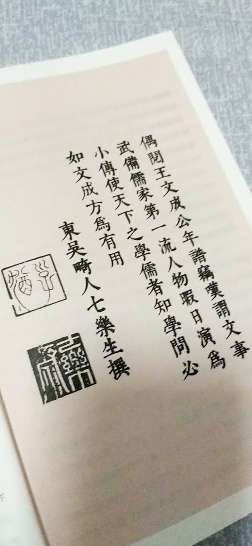 偶閱王文成公年譜竊嘆謂文事
武備儒家第一流人物暇日演為
小傳使天下之學儒者知學問必
如文成方為有用
東吳畸人七樂生撰
七樂生